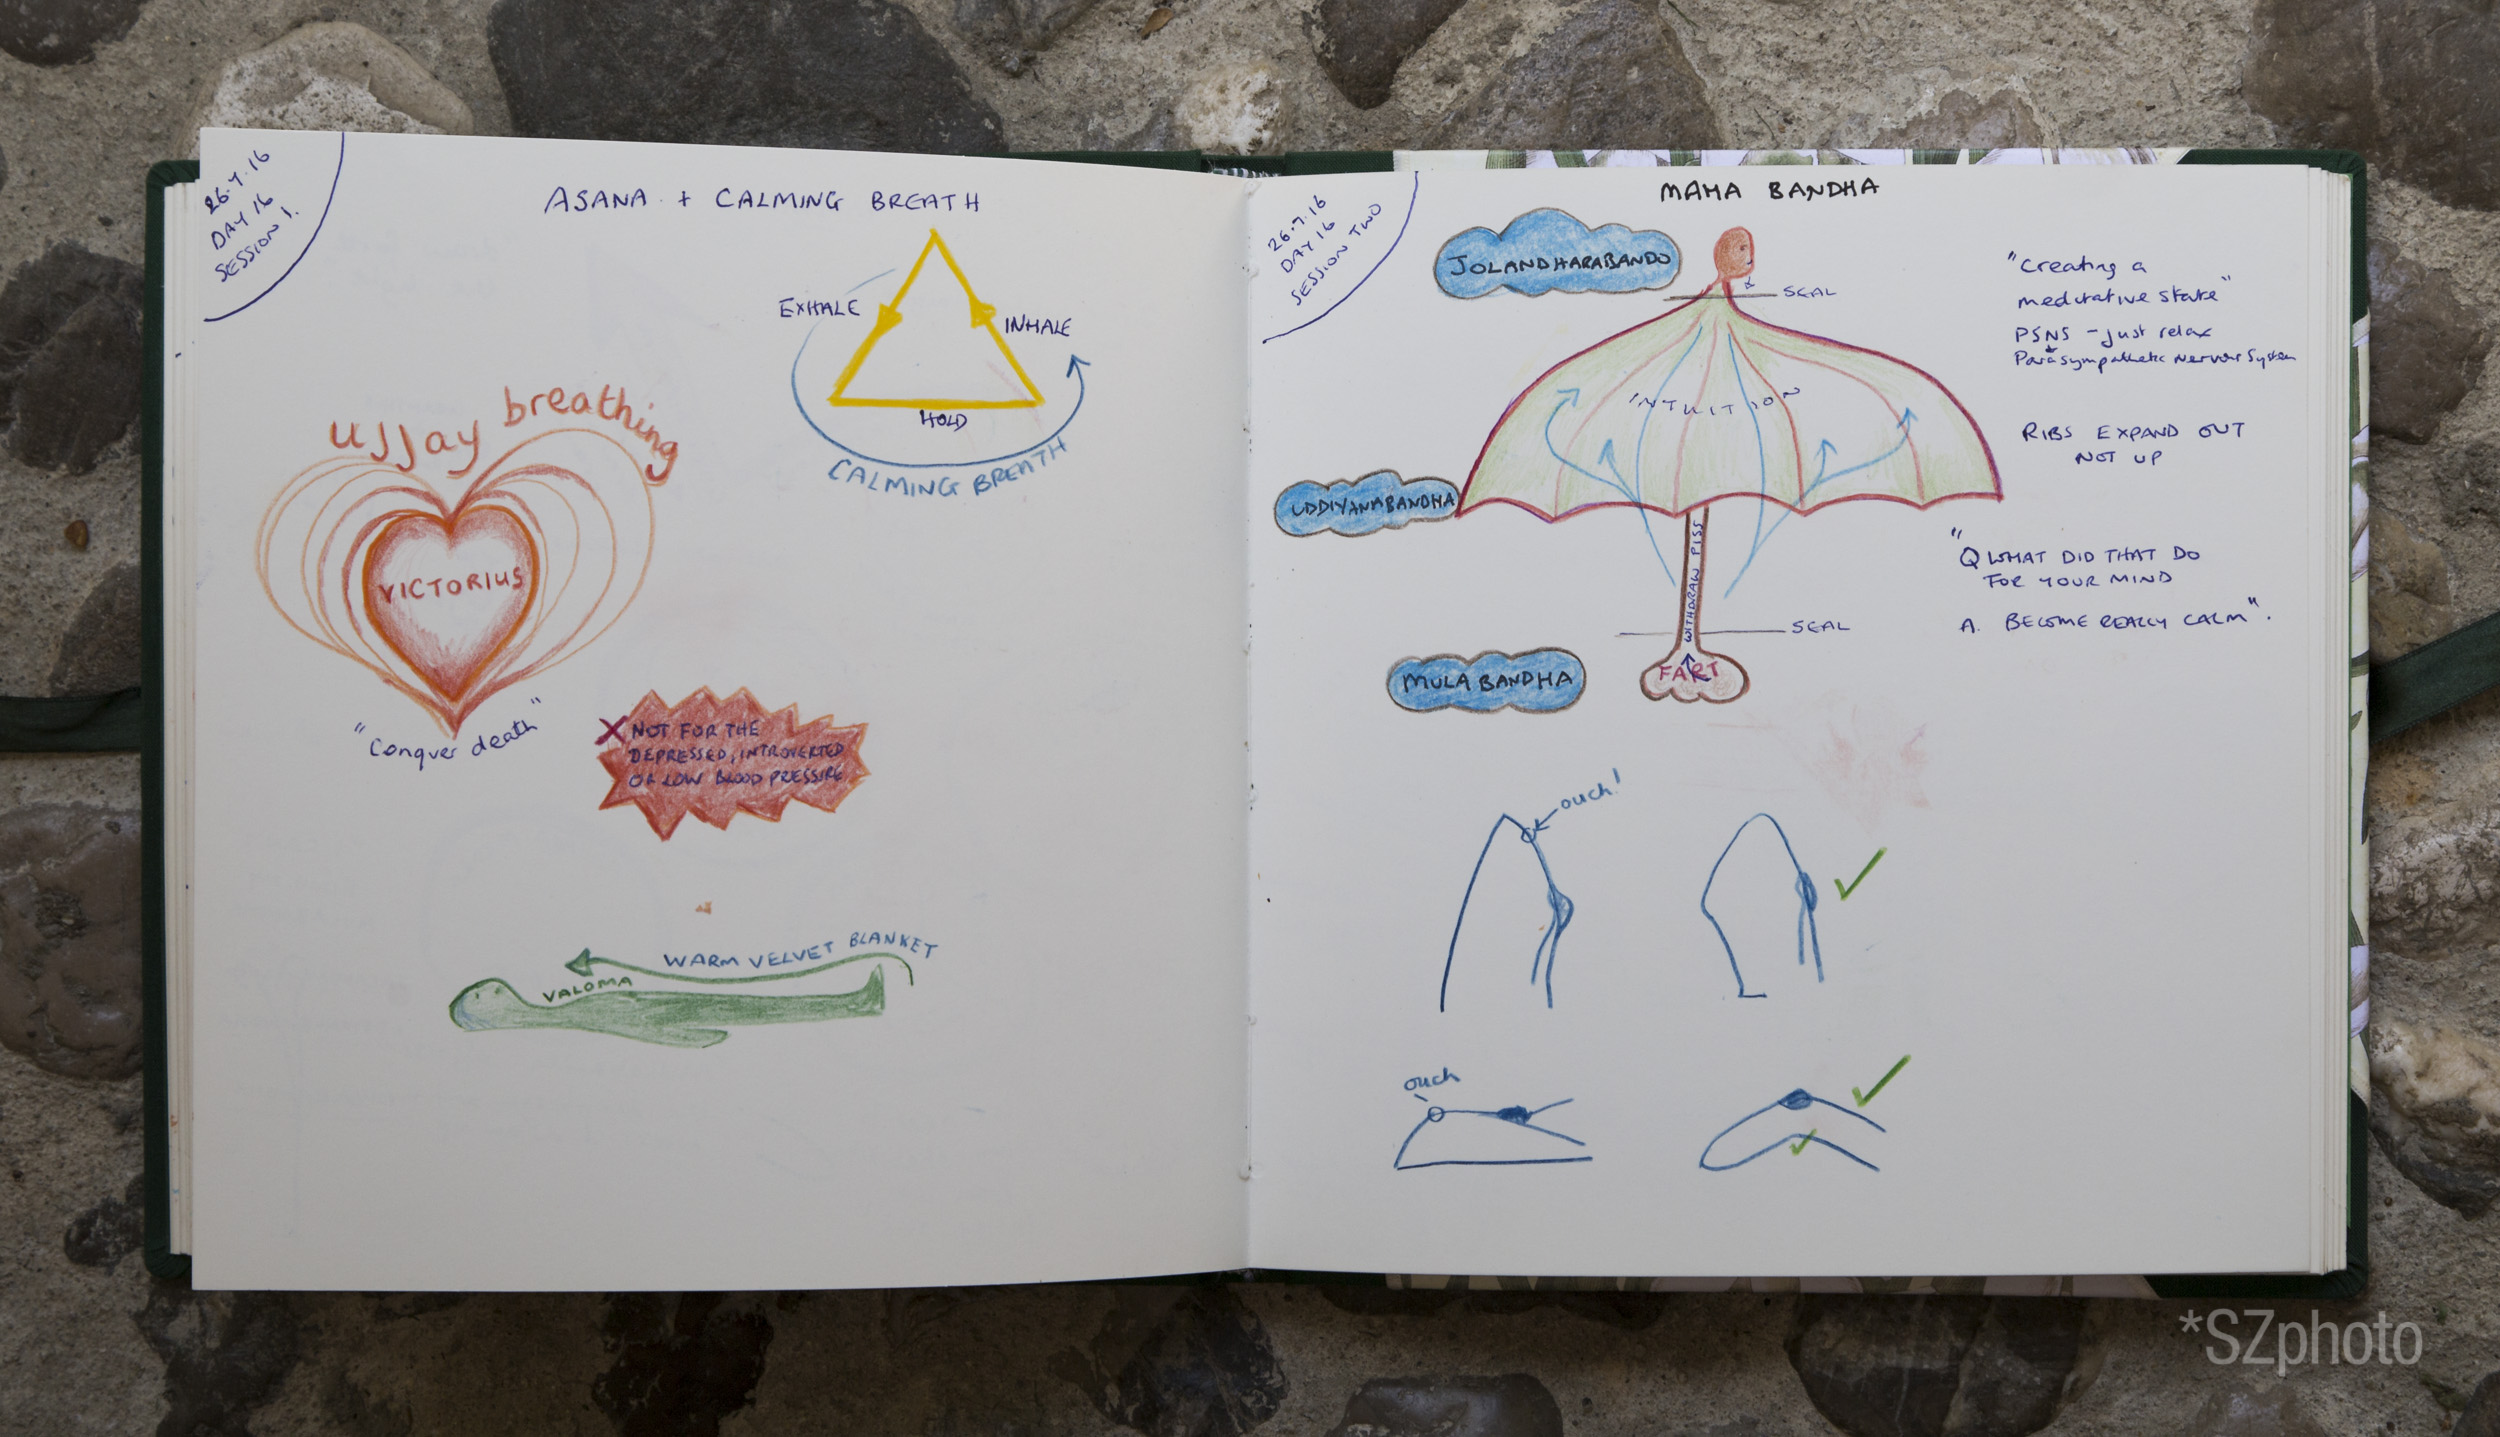 26.7.16
DAY 16
SESSION 1.
ASANA + CALMING BREATH
EXHALE
INHALE
HOLD
CALMING BREATH
UJJAY breathing
VICTORIUS
"Conquer death"
X NOT FOR THE
DEPRESSED, INTROVERTED
OR LOW BLOOD PRESSURE
WARM VELVET BLANKET
VALOMA
26.7.16
DAY 16
SESSION TWO
MAHA BANDHA
JOLANDHARABANDO
SEAL
"Creating a
meditative state"
PSNS - just relax
Parasympathetic Nervous System
INTUITION
RIBS EXPAND OUT
NOT UP
UDDIYANABANDHA
WITHDRAW PISS
"Q WHAT DID THAT DO
FOR YOUR MIND
A. BECOME REALLY CALM".
SEAL
MULA BANDHA
FART
ouch!
ouch
*SZphoto